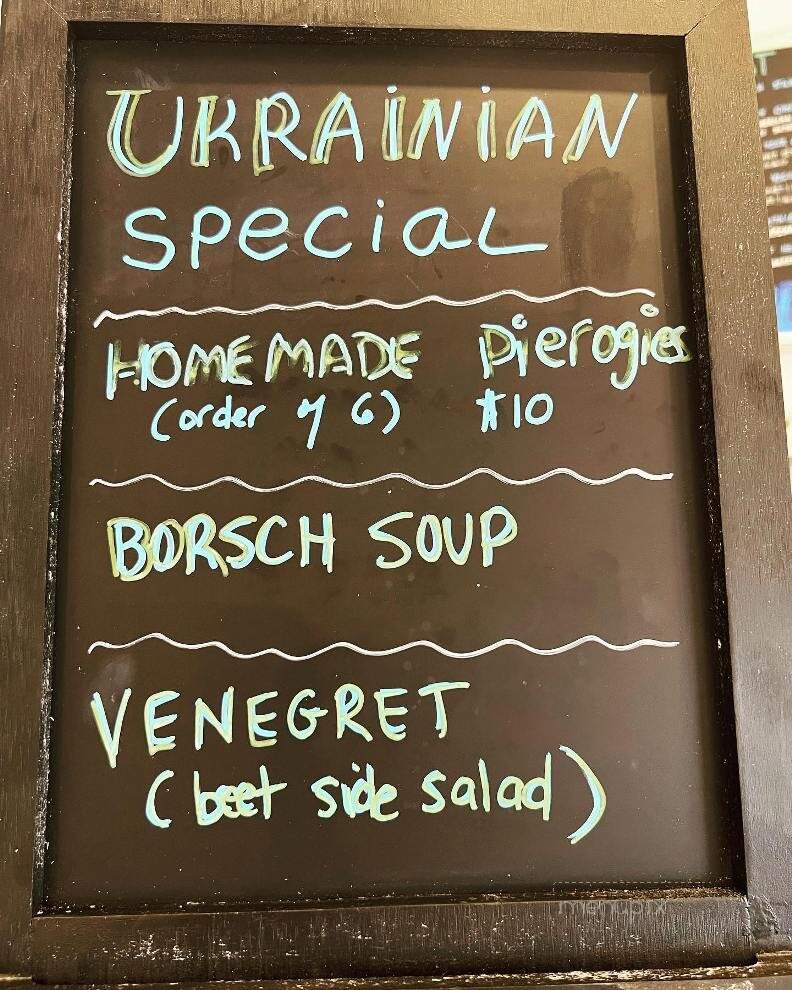 UKRAINIAN
SPECIAL
HOMEMADE Pierogies
(order of 6) $10
BORSCH SOUP
VENEGRET
(beet side salad)
menupix